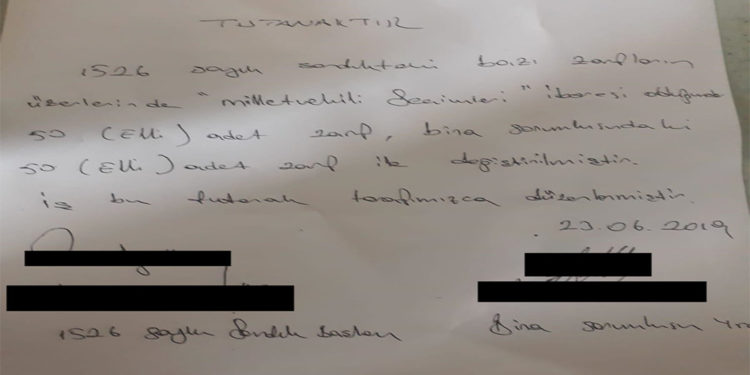 TUTANAKTIR
1526 sayılı sandıktaki bazı zarfların
üzerlerinde "milletvekili Seçimleri" ibaresi olduğundan
50 (Elli) adet zarf, bina sorumlusundaki
50 (Elli) adet zarf ile değiştirilmiştir.
iş bu tutanak tarafımızca düzenlenmiştir.
23.06.2019
1526 sayılı Sandık Başkanı
Bina sorumlusu